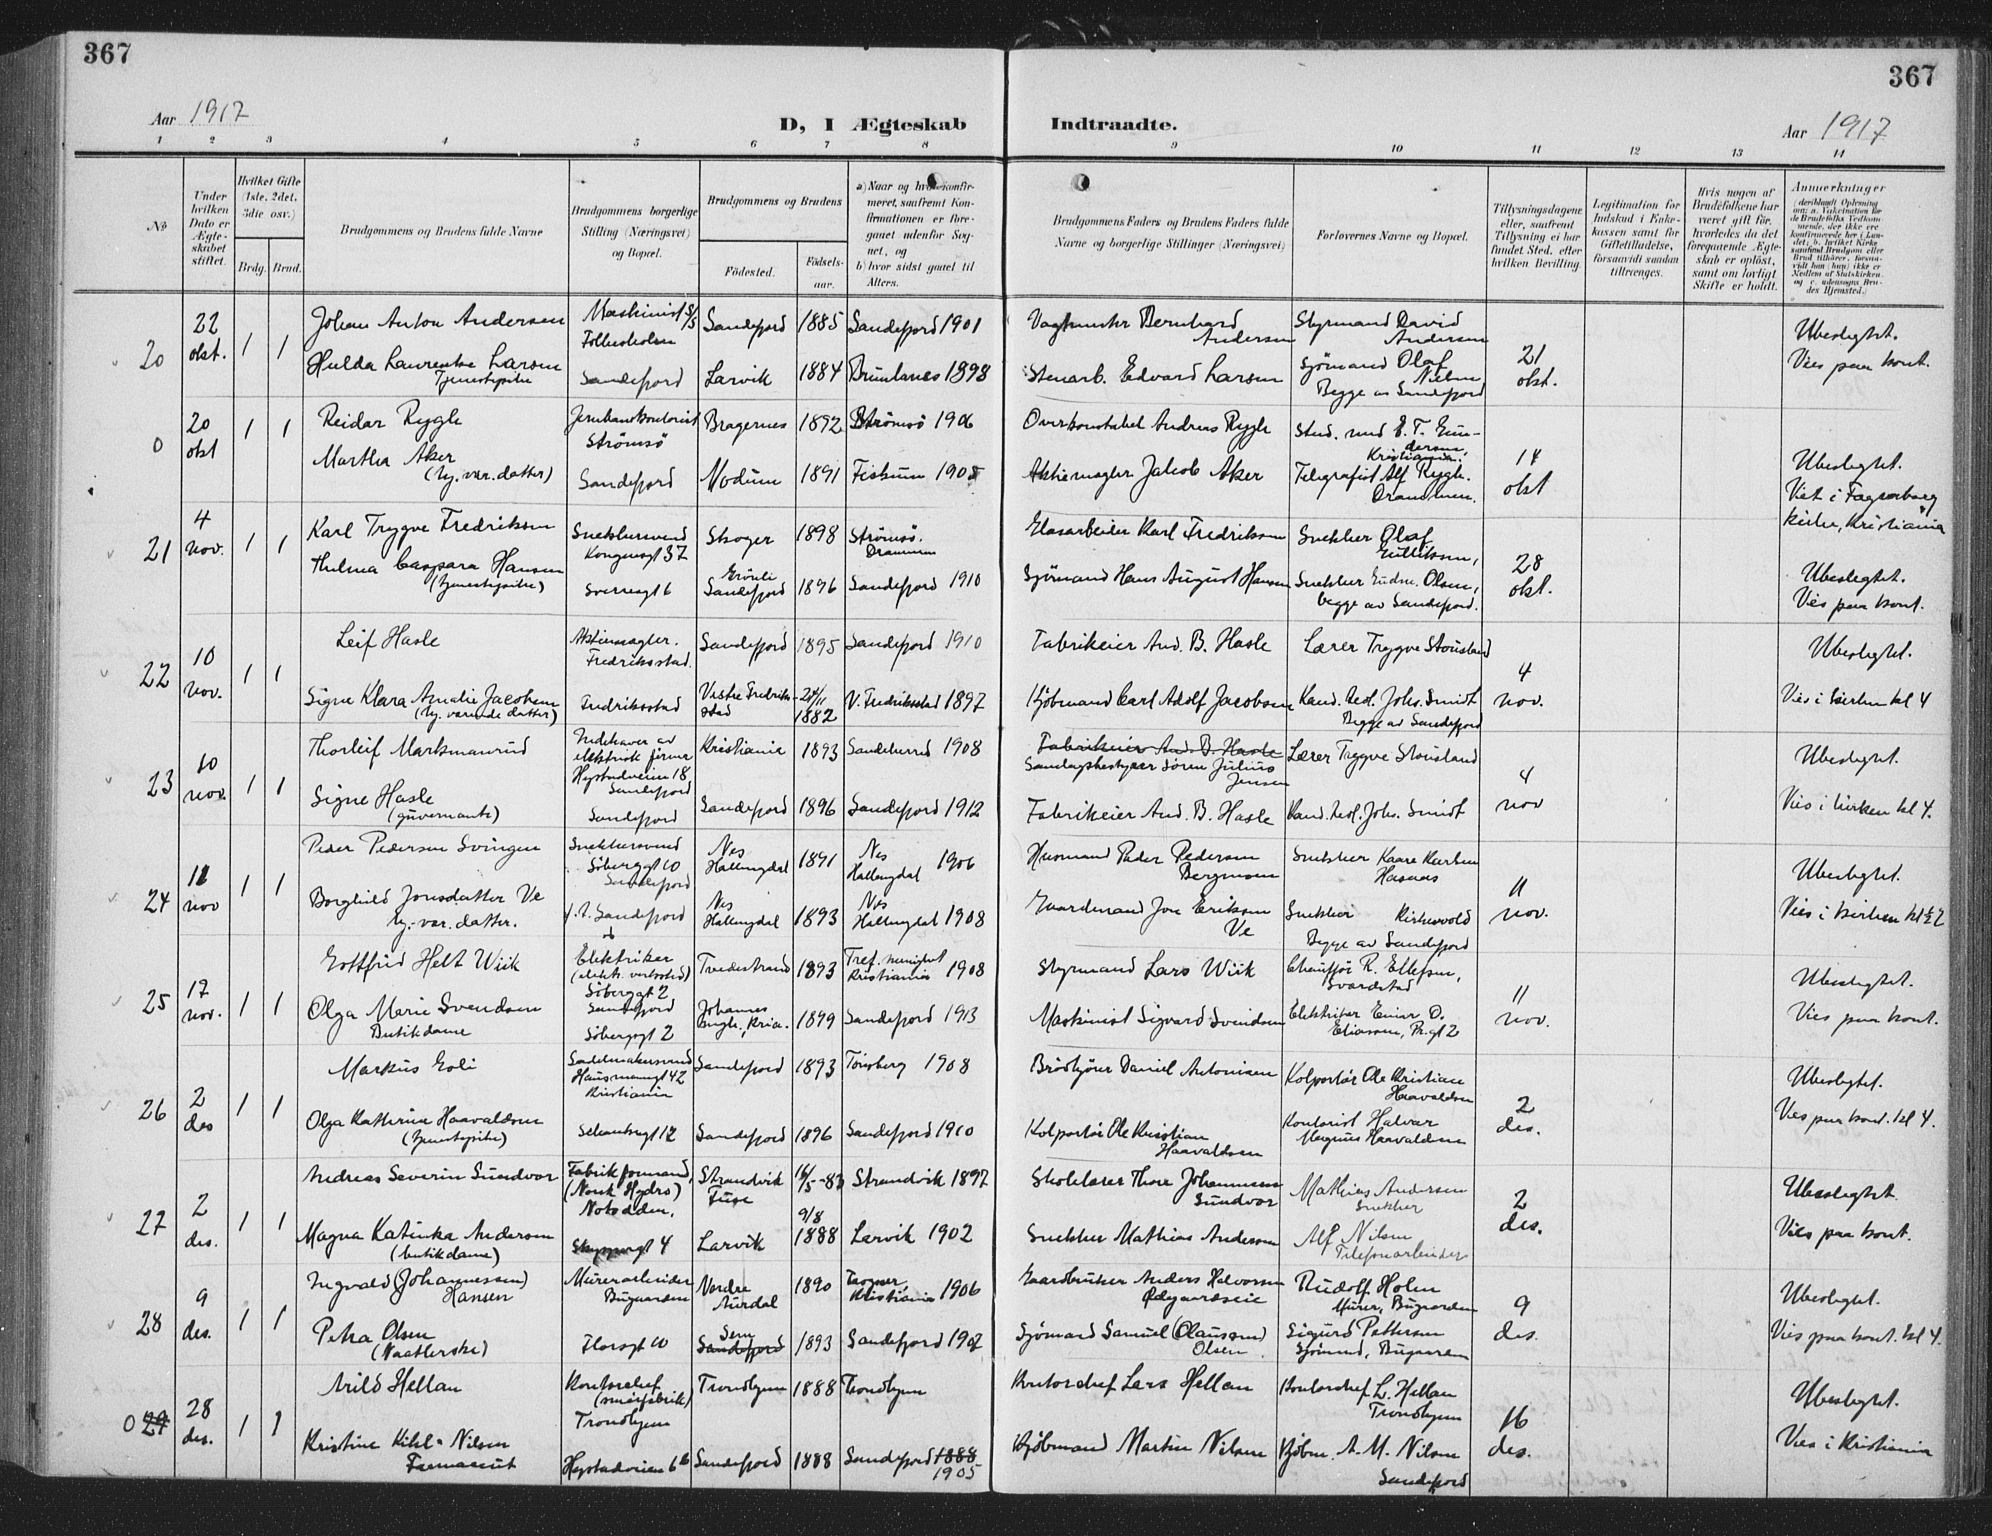 367
367
Aar 1917
D, I Ægteskab
Indtraadte.
Aar 1917
1 2 3 4 5 6 7 8 9 10 11 12 13 14
No
Under hvilken Dato er Ægteskabet stiftet.
Hvilket Gifte (1ste, 2det, 3die osv.)
Brdg. Brud.
Brudgommens og Brudens fulde Navne
Brudgommens borgerlige Stilling (Næringsvei) og Bopæl.
Brudgommens og Brudens
Födested.
Födselsaar.
a) Naar og hvor konfirmeret, saafremt Konfirmationen er foregaaet udenfor Sognet, og
b) hvor sidst gaaet til Alters.
Brudgommens Faders og Brudens Faders fulde Navne og borgerlige Stillinger (Næringsvei)
Forlovernes Navne og Bopæl.
Tillysningsdagene eller, saafremt Tillysning ei har fundet Sted, efter hvilken Bevilling.
Legitimation for Indskud i Enkekassen samt for Giftetilladelse, forsaavidt saadan tiltrænges.
Hvis nogen af Brudefolkene har været gift för, hvorledes da det foregaaende Ægteskab er oplöst, samt om lovligt Skifte er holdt.
Anmerkninger
20
22 okt.
1 1
Johan Anton Andersen
Maskinist S/S
Sandefjord 1885 Sandefjord 1901
Bernhard Andersen
Styrmand David Andersen
21 okt.
Ubeslegtet.
Hulda Laurentze Larsen
Tjenestepike
Sandefjord
Larvik 1884 Brunlanes 1898
Stenarb. Edvard Larsen
Sjömand Olaf Nielsen
Begge av Sandefjord
Vies paa kont.
0
20 okt
1 1
Reidar Rygh
Jernbanekontorist
Strömsö
Bragernes 1892 Strömsö 1906
Overkonstabel Andreas Rygh
Stud. med E. T. Gundersen,
Kristiania.
14 okt
Ubeslegtet.
Martha Aker
(hj. vær. datter)
Sandefjord
Modum 1891 Fiskum 1905
Aktiemægler Jakob Aker
Telegrafist Alf Rygh.
Drammen.
Viet i Fagerborg
kirke, Kristiania
21
4 nov.
1 1
Karl Trygve Fredriksen
Snekkersvend
Kongensgt 37
Skoger 1898 Strömsö.
Drammen
Glasarbeider Karl Fredriksen
Snekker Olaf Gulliksen,
28 okt.
Ubeslegtet.
Thelma Caspara Hansen
(tjenestepike)
Sverresgt 6
Sandefjord 1896 Sandefjord 1910
Sjömand Hans August Hansen
Snekker Gudm. Olsen,
begge av Sandefjord.
Vies paa kont.
22
10 nov.
1 1
Leif Hasle
Aktiemægler.
Fredriksstad.
Sandefjord 1895 Sandefjord 1910
Fabrikeier And. B. Hasle
Lærer Trygve Stousland
4 nov.
Ubeslegtet.
Signe Klara Amalie Jacobsen
(hj. værende datter)
Fredriksstad
Vestre Fredriksstad 24/11 1882 V. Fredriksstad 1897
Kjöbmand Carl Adolf Jacobsen
Kand. teol. Johs. Smidt
Begge av Sandefjord
Vies i kirken kl 4
23
10 nov.
1 1
Thorleif Markmanrud
Indehaver av
elektrisk firma
Hystadveien 18
Sandefjord
Kristiania 1893 Sandeherred 1908
Fabrikeier And. B. Hasle
Sören Julius Jensen
Lærer Trygve Stousland
4 nov
Ubeslegtet.
Signe Hasle
(guvernante)
Sandefjord
Sandefjord 1896 Sandefjord 1912
Fabrikeier And. B. Hasle
Kand. teol. Johs. Smidt
Vies i kirken kl 4.
24
11 nov
1 1
Peder Pedersen Svingen
Snekkersvend
Söbergsgt 10
Sandefjord
Nes
Hallingdal 1891 Nes
Hallingdal 1906
Husmand Peder Pedersen
Bergmoen
Snekker Kaare Karlsen
11 nov.
Ubeslegtet.
Borghild Jonsdatter Ve
hj. vær. datter.
f.t. Sandefjord
Nes
Hallingdal 1893 Nes
Hallingdal 1908
Gaardmand Jon Eriksen
Ve
Snekker Kirkevold
Begge av Sandefjord
Vies i kirken kl ½ 2
25
17 nov.
1 1
Gottfrid Helt Wiik
Elektriker
(elektr. verksted)
Söbergsgt 2
Sandefjord
Tvedestrand 1893 Tref. menighet
Kristiania 1908
Styrmand Lars Wiik
Chauffør R. Ellefsen,
Svarstad
11 nov.
Ubeslegtet.
Olga Marie Svendsen
Butikdame
Söbergsgt 2
Johannes
mngh., Kria. 1899 Sandefjord 1913
Maskinist Sigvard Svendsen
Elektriker Einar O.
Eliassen, Pr.gt 2
Vies paa kont.
26
2 des
1 1
Markus Goli
Sadelmakersvend
Hausmannsgt 42
Kristiania
Sandefjord 1893 Tönsberg 1908
Brödkjörer Daniel Antonisen
Kolportör Ole Kristian
Haavaldsen
2 des.
Ubeslegtet.
Olga Katherine Haavaldsen
(tjenestepike)
Sandefjord 1896 Sandefjord 1910
Kolportör Ole Kristian
Haavaldsen
Kontorist Halvar
Magnus Haavaldsen
Vies paa kont. kl 4.
27
2 des.
1 1
Andreas Severin Sundvor
Fabrikformand,
(Norsk Hydro)
Notodden.
Strandvik
Fuse
16/5-83 Strandvik 1897
Skolelærer Thore Johannessen
Sundvor
Mathias Andersen
Snekker
2 des.
Ubeslegtet.
Magna Katinka Andersen
(butikdame)
Larvik 9/8 1888 Larvik 1902
Snekker Mathias Andersen
Alf Nilsen
Telefonarbeider
Vies paa kont.
28
9 des.
1 1
Ingvald (Johannessen)
Hansen
Murerarbeider
Bugaarden
Nordre
Aurdal 1890
Kristiania 1906
Gaardbruker Anders Halvorsen
Ödegaardseie
Rudolf Holm
Murer, Bugaarden
9 des.
Ubeslegtet.
Petra Olsen
(Vaatlerske)
Florsgt 10
Sem
Sandefjord 1893 Sandefjord 1907
Sjömand Samuel (Olaussen)
Olsen
Sigurd Pettersen
Sjömand, Bugaarden
Vies paa kont. kl 4.
0 29
28 des.
1 1
Arild Hellan
Kontorchef
Trondhjem
Trondhjem 1888 Trondhjem
Kontorchef Lars Hellan
Kontorchef L. Hellan
Trondhjem
16 des.
Ubeslegtet.
Kristine Kihl-Nilsen
Farmaceut
Hystadveien 6b
Sandefjord 1888 Sandefjord 1888
1905
Kjöbmand Martin Nilsen
Kjöbm. A. M. Nilsen
Sandefjord
Vies i Kristiania